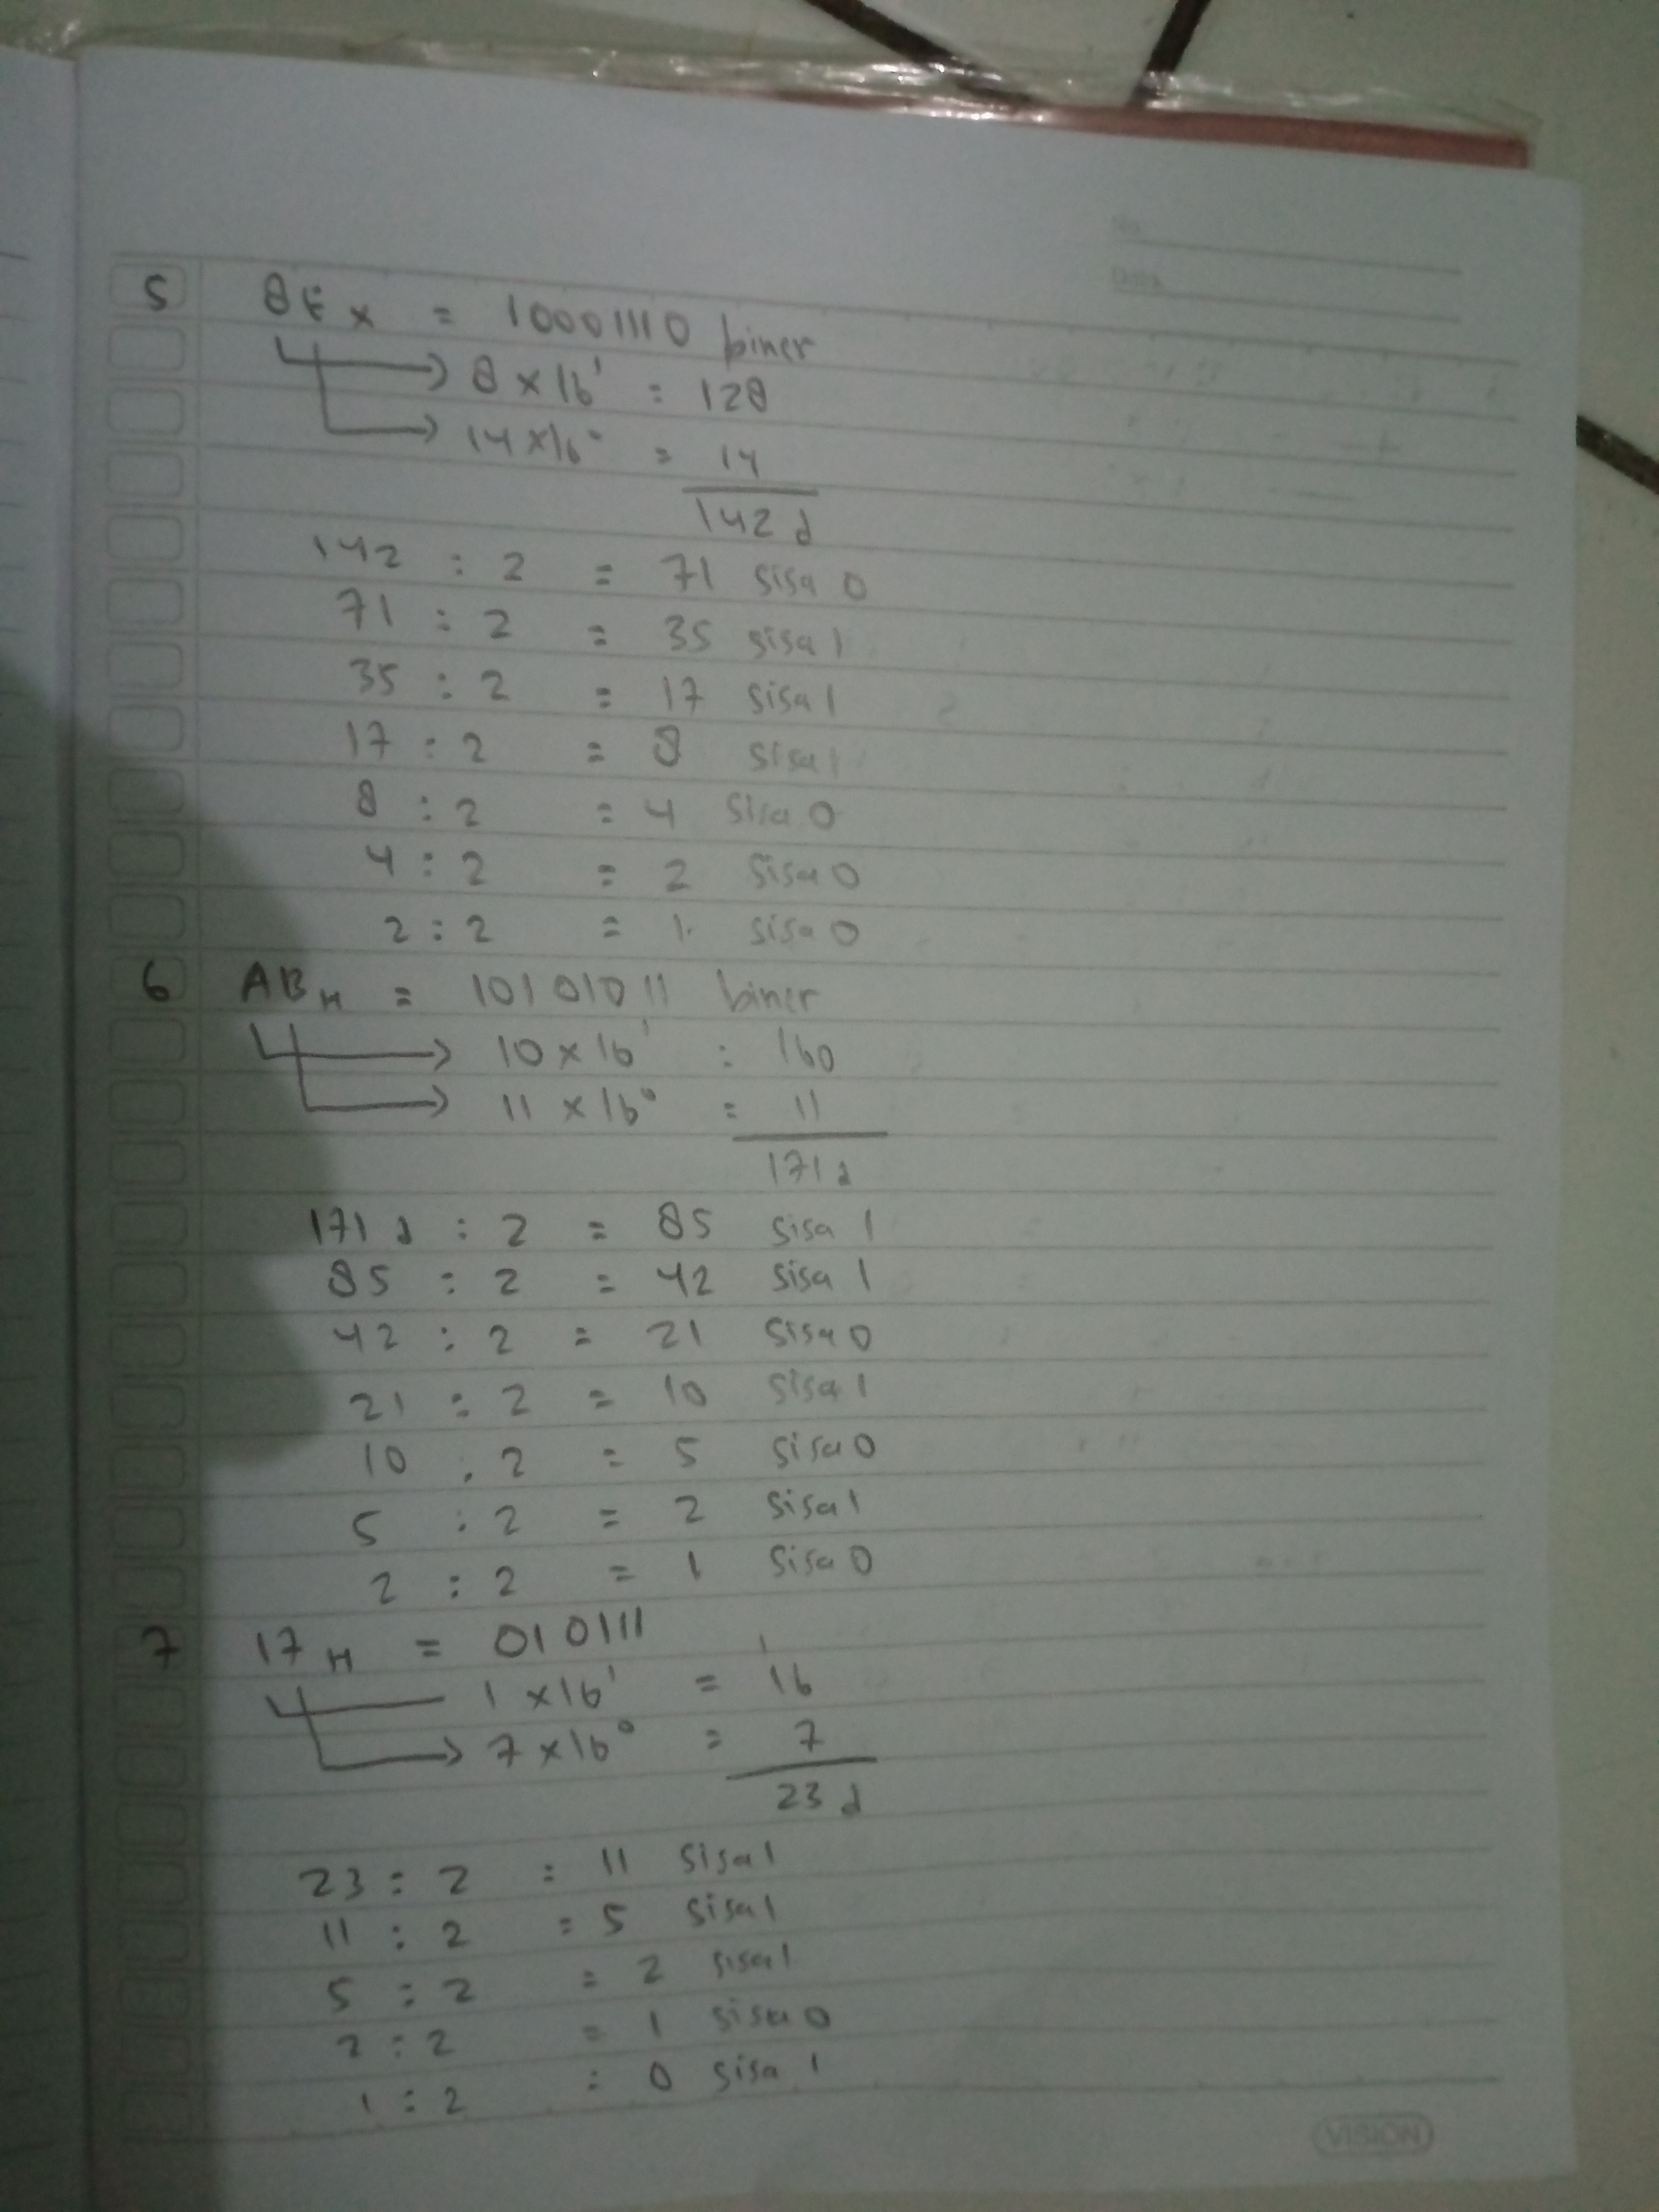 No
Date
5 8E x = 10001110 biner
8 x 16¹ = 128
14 x 16⁰ = 14
142 d
142 : 2 = 71 sisa 0
71 : 2 = 35 sisa 1
35 : 2 = 17 sisa 1
17 : 2 = 8 sisa 1
8 : 2 = 4 sisa 0
4 : 2 = 2 sisa 0
2 : 2 = 1 sisa 0
6 AB H = 10101011 biner
10 x 16¹ : 160
11 x 16⁰ = 11
171 d
171 d : 2 = 85 sisa 1
85 : 2 = 42 sisa 1
42 : 2 = 21 sisa 0
21 : 2 = 10 sisa 1
10 : 2 = 5 sisa 0
5 : 2 = 2 sisa 1
2 : 2 = 1 sisa 0
7 17 H = 010111
1 x 16¹ = 16
7 x 16⁰ = 7
23 d
23 : 2 = 11 sisa 1
11 : 2 = 5 sisa 1
5 : 2 = 2 sisa 1
2 : 2 = 1 sisa 0
1 : 2 = 0 sisa 1
VISION